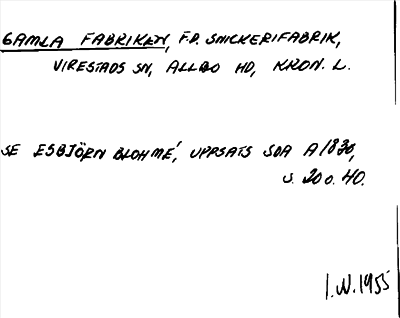 GAMLA FABRIKEN, F.D. SNICKERIFABRIK,
VIRESTADS SN, ALLBO HD, KRON. L.
SE ESBJÖRN BLOHMÉ, UPPSATS SOA A 1830,
S. 20 o. 40.
I.W. 1955